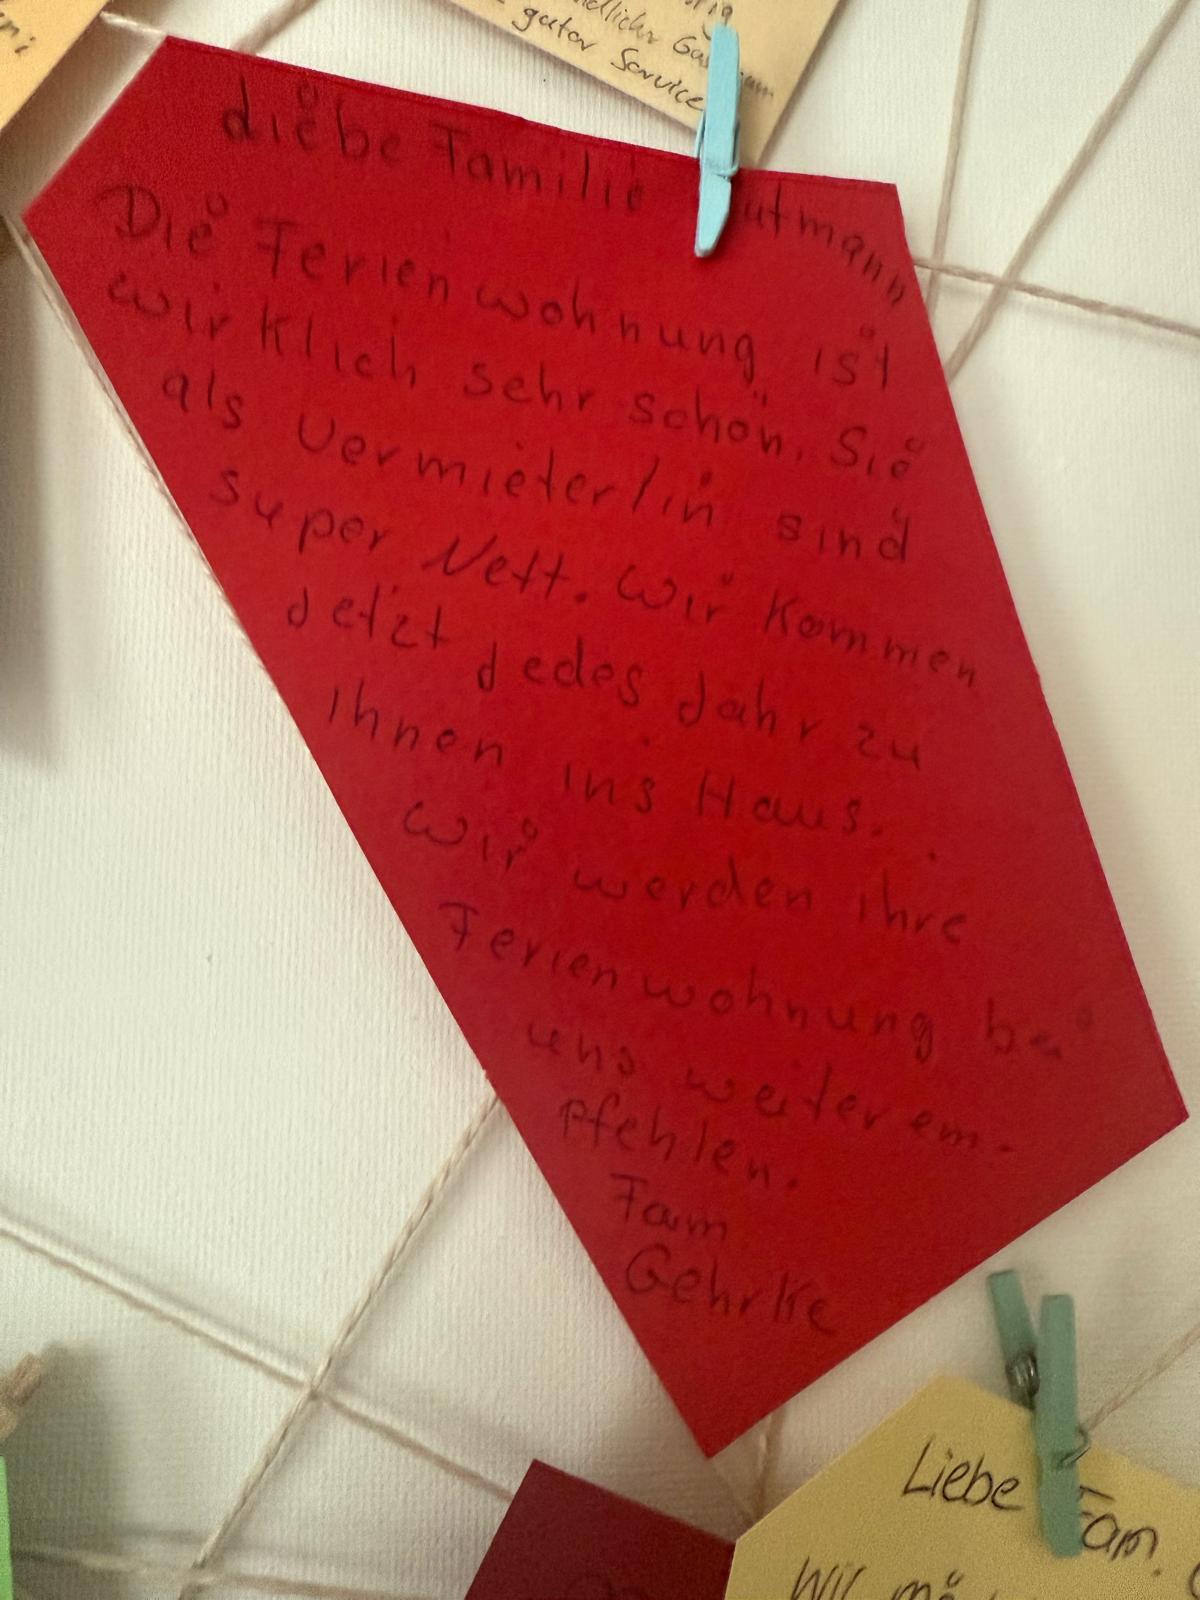 gutor Service
diebe Familie utmann
Die Ferienwohnung ist
wirklich sehr schön. Sie
als Vermieter/in sind
super Nett. Wir kommen
Jetzt Jedes Jahr zu
Ihnen ins Haus.
Wir werden ihre
Ferienwohnung bei
uns weiter em-
pfehlen.
Fam
Gehrke
Liebe Fam.
Wir